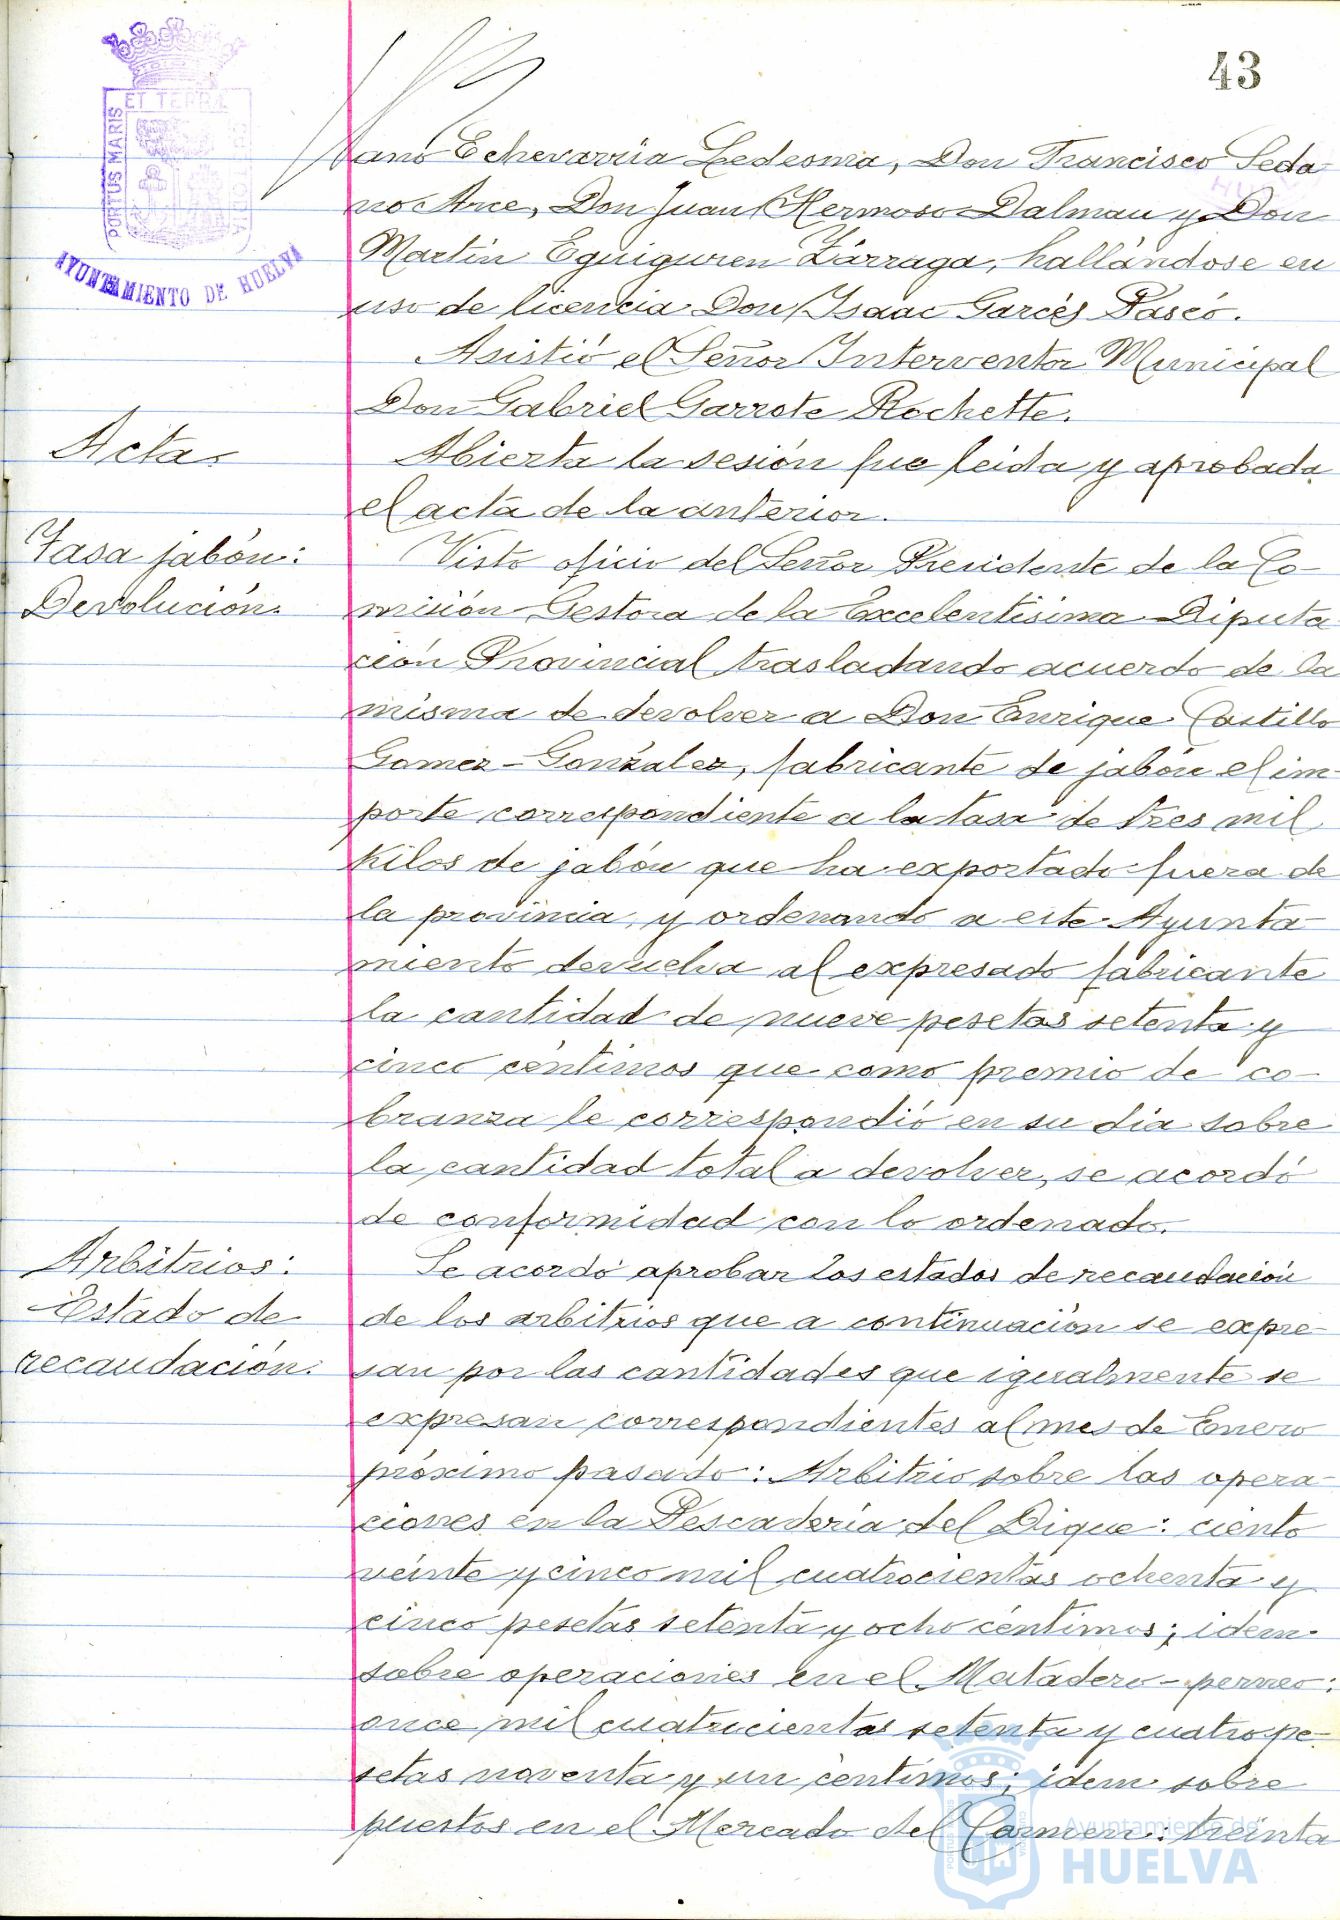 43
PORTUS MARIS
ET TERRÆ
CUSTODIA
AYUNTAMIENTO DE HUELVA
ano Echevarria Ledesma, Don Francisco Seda-
no Arce, Don Juan Hermoso Dalmau y Don
Martín Eguiguren Zárraga, hallándose en
uso de licencia Don Isaac Garcés Pascó.
Asistió el Señor Interventor Municipal
Don Gabriel Garrote Rochette.
Acta.
Abierta la sesión fue leida y aprobada
el acta de la anterior.
Tasa jabón:
Devolución.
Visto oficio del Señor Presidente de la Co-
misión Gestora de la Excelentísima Diputa-
ción Provincial trasladando acuerdo de la
misma de devolver a Don Enrique Castillo
Gomez-González, fabricante de jabón el im-
porte correspondiente a la tasa de tres mil
kilos de jabón que ha exportado fuera de
la provincia, y ordenando a este Ayunta-
miento devuelva al expresado fabricante
la cantidad de nueve pesetas setenta y
cinco céntimos que como premio de co-
branza le correspondió en su día sobre
la cantidad total a devolver, se acordó
de conformidad con lo ordenado.
Arbitrios:
Estado de
recaudación.
Se acordó aprobar los estados de recaudación
de los arbitrios que a continuación se expre-
san por las cantidades que igualmente se
expresan correspondientes al mes de Enero
próximo pasado: Arbitrio sobre las opera-
ciones en la Pescadería del Dique: ciento
veinte y cinco mil cuatrocientas ochenta y
cinco pesetas setenta y ocho céntimos; idem
sobre operaciones en el Matadero-perneo:
once mil cuatrocientas setenta y cuatro pe-
setas noventa y un céntimos; idem sobre
puestos en el Mercado del Carmen: treinta
Ayuntamiento de
HUELVA